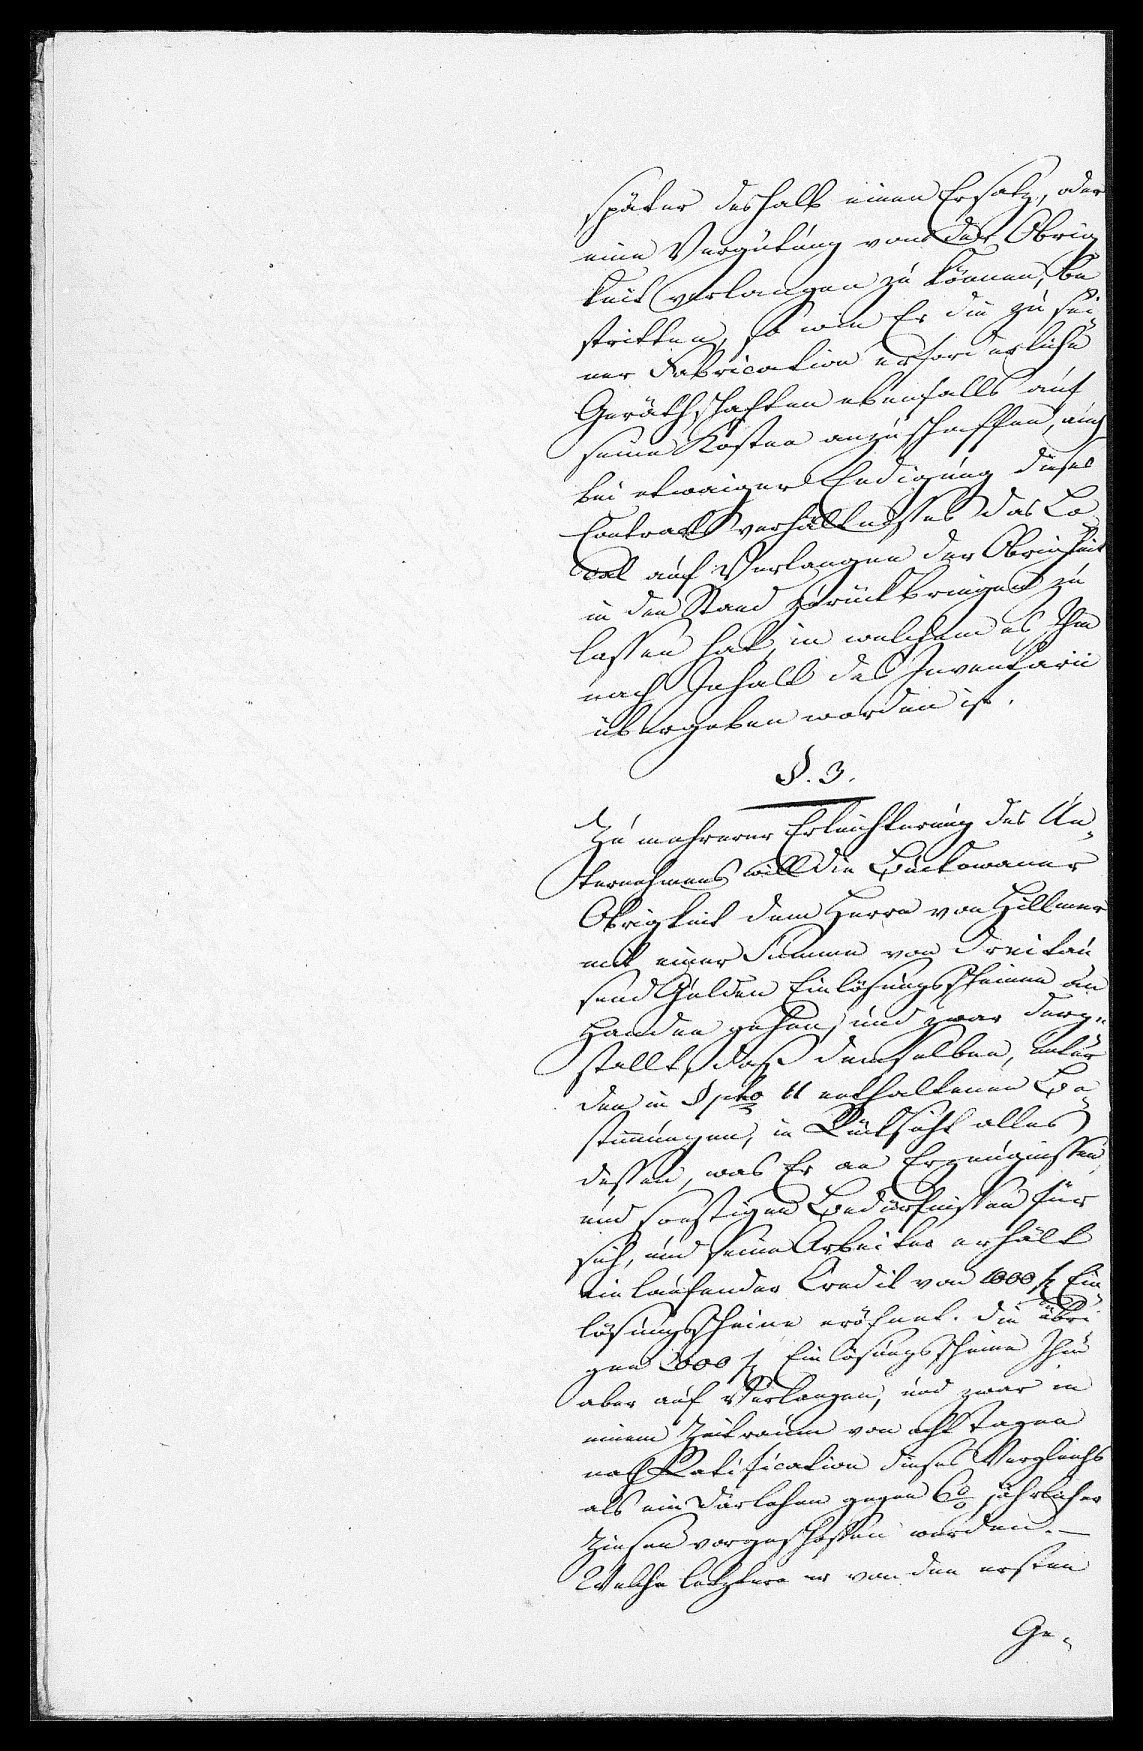 später deshalb einen Ersatz, oder
eine Vergütung von der Obrig
keit verlangen zu können, be
stritten, so wie Er die zu sei-
ner Fabrication erforderliche
Geräthschaften ebenfalls auf
seine Kosten anzuschaffen, auch
bei etwaiger Endigung dieses
Contracts verhältnisses das Lo-
cal auf Verlangen der Obrigkeit
in den Stand zurückbringen zu
lassen hat, in welchem es Ihm
nach Inhalt des Inventarii
übergeben worden ist.
§. 3.
Zu mehrerer Erleichterung des Un-
ternehmens will die Buckowaner
Obrigkeit dem Herrn von Hillmer
mit einer Summe von dreitau
send Gulden Einlösungsscheinen an
Handen gehen, und zwar derge-
stallt, daß demselben, unter
den in § pto 11 enthaltenen Be-
stimmungen, in Rücksicht alles
dessen, was Er an Erzeugnissen
und sonstigen Bedürfnissen für
sich, und seine Arbeiter erhält
ein laufender Credit von 1000 f Ein-
lösungsscheine eröfnet. die übri-
gen 2000 f Einlösungsscheine Ihm
aber auf Verlangen, und zwar in
einem Zeitraum von acht Tagen
nach Ratification dieses Vergleichs
als ein Darlehen gegen 6% jährlicher
Zinsen vorgeschossen werden. —
Welche letztere er von den ersten
Ge-